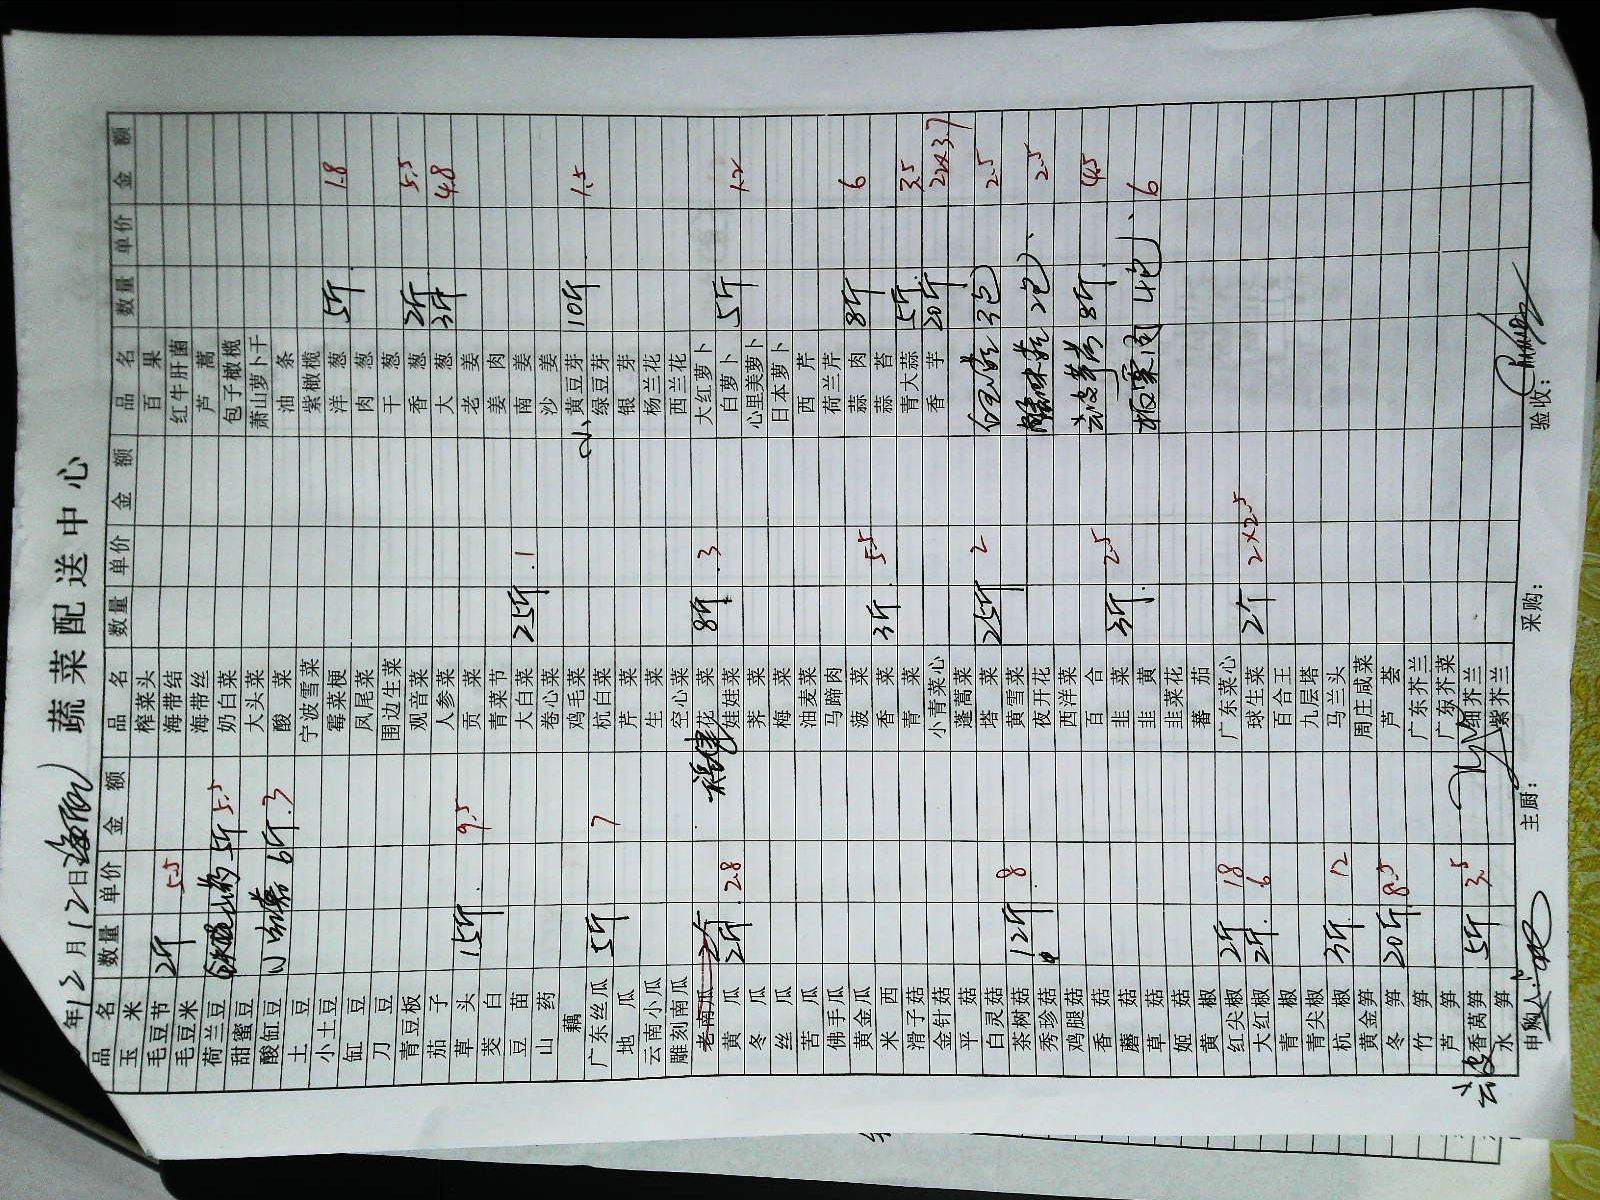 蔬菜配送中心
年12月12日
品名 数量 单价 金额 品名 数量 单价 金额 品名 数量 单价 金额
玉米 榨菜头 百果
毛豆节 2斤 5.5 海带结 红牛肝菌
毛豆米 海带丝 芦蒿
荷兰豆 5斤 5.5 奶白菜 包子橄榄
甜蜜豆 大头菜 萧山萝卜干
酸缸豆 6斤 3 酸菜 油条
土豆 宁波雪菜 紫橄榄
小土豆 霉菜梗 洋葱 5斤 1.8
缸豆 凤尾菜 肉葱
刀豆 围边生菜 干葱
青豆板 观音菜 香葱 2斤 5.5
茄子 人参菜 大葱 3斤 4.8
草头 15斤 9.5 贡菜 老姜
茭白 青菜节 姜肉
豆苗 大白菜 25斤 1 南姜
山药 卷心菜 沙姜
藕 鸡毛菜 小黄豆芽 10斤 1.5
广东丝瓜 5斤 7 杭白菜 绿豆芽
地瓜 芹菜 银芽
云南小瓜 生菜 杨兰花
雕刻南瓜 空心菜 西兰花
老南瓜 2斤 花菜 8斤 3 大红萝卜
黄瓜 2斤 2.8 娃娃菜 白萝卜 5斤 1.2
冬瓜 荠菜 心里美萝卜
丝瓜 梅菜 日本萝卜
苦瓜 油麦菜 西芹
佛手瓜 马蹄肉 荷兰芹
黄金瓜 菠菜 蒜肉 8斤 6
米西 香菜 3斤 5.5 蒜苔
滑子菇 青菜 青大蒜 5斤 3.5
金针菇 小青菜心 香芋 20斤 22×3.7
平菇 蓬蒿菜
白灵菇 塔菜 25斤 2 白玉菇 3包 2.5
茶树菇 12斤 8 黄雪菜
秀珍菇 夜开花 2包 2.5
鸡腿菇 西洋菜
香菇 百合 去皮 8斤 4.5
蘑菇 韭菜 3斤 2.5
草菇 韭黄 板栗肉 4包 6
姬菇 韭菜花
黄椒 蕃茄
红尖椒 2斤 18 广东菜心
大红椒 2斤 6 球生菜 2斤 2×2.5
青椒 百合王
青尖椒 九层塔
杭椒 3斤 12 马兰头
黄金笋 周庄咸菜
冬笋 20斤 8.5 芦荟
竹笋 广东芥兰
芦笋 广东芥菜
去皮香莴笋 5斤 3.5 细芥兰
水笋 紫芥兰
申购人: 主厨: 采购: 验收: